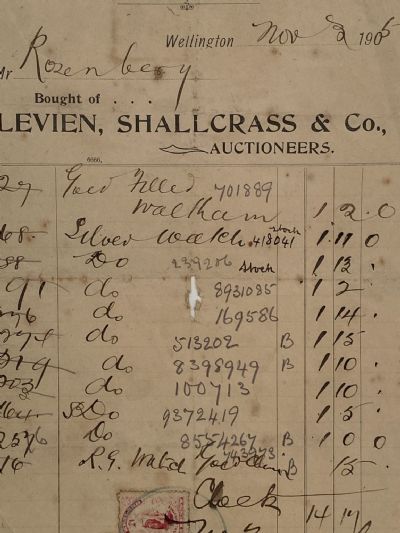 Wellington Nov 2 1905
Mr Rosenberg
Bought of . . .
LEVIEN, SHALLCRASS & Co.,
AUCTIONEERS.
6666,
29 Gold Filled 701889
Waltham 1 2 0
Silver Watch 418041 Stock 1 11 0
Do 239206 Stock 1 12 "
91 do 8931085 1 2 "
do 169586 1 14 "
do 513202 B 1 15
do 8398949 B 1 10 "
do 100713 1 10 "
Do 9372419 1 5 "
2576 Do 8554267 B 1 0 0
16 R.G. Watch 743973 B 15 "
Clock
14 17